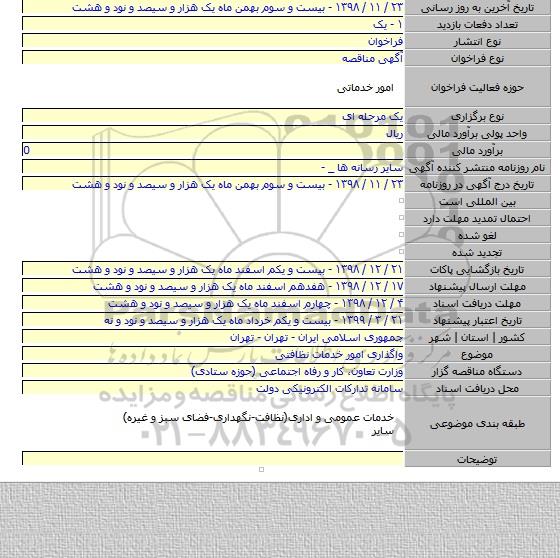 تاریخ آخرین به روز رسانی ۲۳ / ۱۱ / ۱۳۹۸ - بیست و سوم بهمن ماه یک هزار و سیصد و نود و هشت
تعداد دفعات بازدید ۱ - یک
نوع انتشار فراخوان
نوع فراخوان آگهی مناقصه
حوزه فعالیت فراخوان امور خدماتی
نوع برگزاری یک مرحله ای
واحد پولی برآورد مالی ریال
برآورد مالی 0
نام روزنامه منتشر کننده آگهی سایر رسانه ها _ -
تاریخ درج آگهی در روزنامه ۲۳ / ۱۱ / ۱۳۹۸ - بیست و سوم بهمن ماه یک هزار و سیصد و نود و هشت
بین المللی است
احتمال تمدید مهلت دارد
لغو شده
تجدید شده
تاریخ بازگشایی پاکات ۲۱ / ۱۲ / ۱۳۹۸ - بیست و یکم اسفند ماه یک هزار و سیصد و نود و هشت
مهلت ارسال پیشنهاد ۱۷ / ۱۲ / ۱۳۹۸ - هفدهم اسفند ماه یک هزار و سیصد و نود و هشت
مهلت دریافت اسناد ۴ / ۱۲ / ۱۳۹۸ - چهارم اسفند ماه یک هزار و سیصد و نود و هشت
تاریخ اعتبار پیشنهاد ۲۱ / ۳ / ۱۳۹۹ - بیست و یکم خرداد ماه یک هزار و سیصد و نود و نه
کشور | استان | شهر جمهوری اسلامی ایران - تهران - تهران
موضوع واگذاری امور خدمات نظافتی
دستگاه مناقصه گزار وزارت تعاون، کار و رفاه اجتماعی (حوزه ستادی)
محل دریافت اسناد سامانه تدارکات الکترونیکی دولت
طبقه بندی موضوعی خدمات عمومی و اداری(نظافت-نگهداری-فضای سبز و غیره)
سایر
توضیحات
پایگاه اطلاع رسانی مناقصه و مزایده
۰۲۱-۸۸۳۴۹۶۷۰-۵